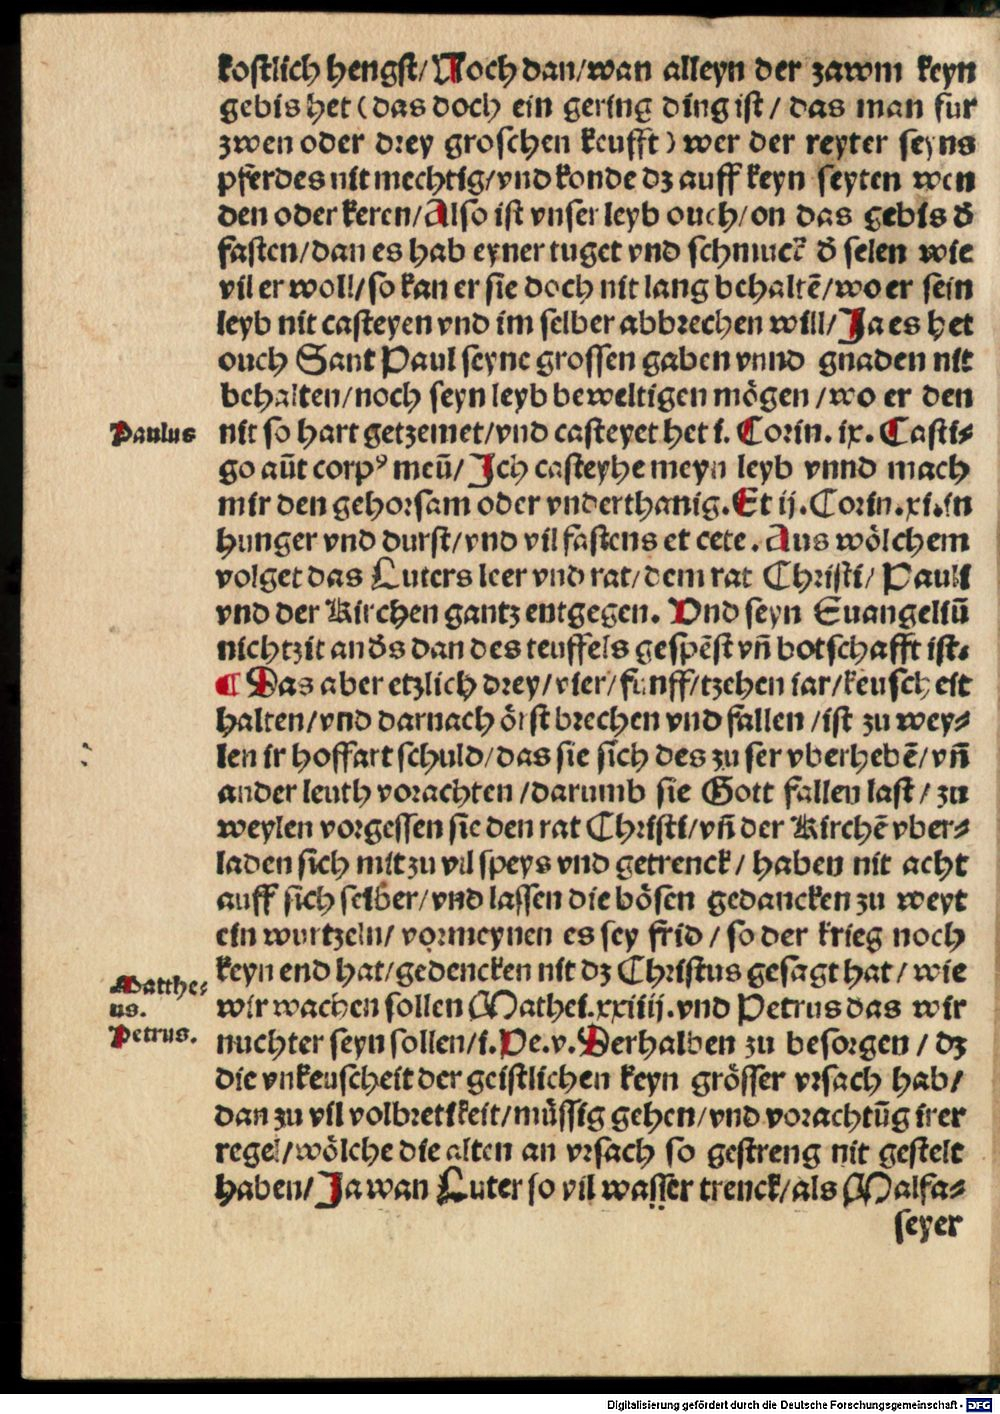 kostlich hengst/ Noch dan/wan alleyn der zawm keyn
gebis het (das doch ein gering ding ist / das man fur
zwen oder drey groschen keufft) wer der reyter seyns
pferdes nit mechtig/vnd konde dz auff keyn seyten wen
den oder keren/Also ist vnser leyb ouch/on das gebis d̄
fasten/dan es hab eyner tuget vnd schmuck d̄ selen wie
vil er woll/so kan er sie doch nit lang behaltē/wo er sein
leyb nit casteyen vnd im selber abbrechen will/Ja es het
ouch Sant Paul seyne grossen gaben vnnd gnaden nit
behalten/noch seyn leyb beweltigen mögen /wo er den
Paulus
nit so hart getzemet/vnd casteyet het i. Corin. ix. Casti⸗
go aūt corpꝰ meū/ Ich casteyhe meyn leyb vnnd mach
mir den gehorsam oder vnderthanig. Et ij. Corin.xi.in
hunger vnd durst/vnd vil fastens et cete. Aus wölchem
volget das Luters leer vnd rat/dem rat Christi/ Pauli
vnd der Kirchen gantz entgegen. Vnd seyn Euangeliū
nichtzit and̄s dan des teuffels gespēst vn̄ botschafft ist.
¶ Das aber etzlich drey/vier/funff/tzehen iar/keuscheit
halten/vnd darnach örst brechen vnd fallen /ist zu wey⸗
len ir hoffart schuld/das sie sich des zu ser vberhebē/vn̄
ander leuth vorachten /darumb sie Gott fallen last / zu
weylen vorgessen sie den rat Christi/vn̄ der Kirchē vber⸗
laden sich mit zu vil speys vnd getrenck/ haben nit acht
auff sich selber/vnd lassen die bösen gedancken zu weyt
ein wurtzeln/ vormeynen es sey frid / so der krieg noch
keyn end hat/gedencken nit dz Christus gesagt hat/ wie
Matthe⸗
us.
wir wachen sollen Mathei.xxiiij.vnd Petrus das wir
Petrus.
nuchter seyn sollen/i.Pe.v.Derhalben zu besorgen / dz
die vnkeuscheit der geistlichen keyn grösser vrsach hab/
dan zu vil volbretikeit/müssig gehen/vnd vorachtūg irer
regel/wölche die alten an vrsach so gestreng nit gestelt
haben/Ja wan Luter so vil wasser trenck/als Malfa⸗
seyer
Digitalisierung gefördert durch die Deutsche Forschungsgemeinschaft - DFG